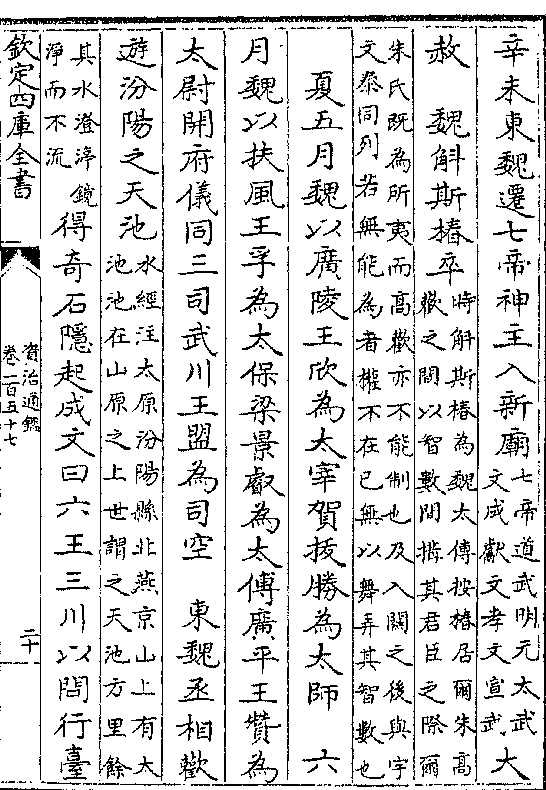 辛未東魏遷七帝神主入新廟七帝道武明元太武文成獻文孝文宣武大
赦　魏斛斯椿卒時斛斯椿為魏太傅按椿居爾朱高歡之間以智數間搆其君臣之際爾
朱氏既為所夷而高歡亦不能制也及入關之後與宇文泰同列若無能為者權不在已無以舞弄其智數也
夏五月魏以廣陵王欣為太宰賀拔勝為太師　六
月魏以扶風王孚為太保梁景叡為太傅廣平王贊為
太尉開府儀同三司武川王盟為司空　東魏丞相歡
遊汾陽之天池水經注太原汾陽縣北燕京山上有大池池在山原之上世謂之天池方里餘
其水澄渟鏡淨而不流得奇石隱起成文曰六王三川以問行臺
欽定四庫全書
資治通鑑
卷一百五十七
二十